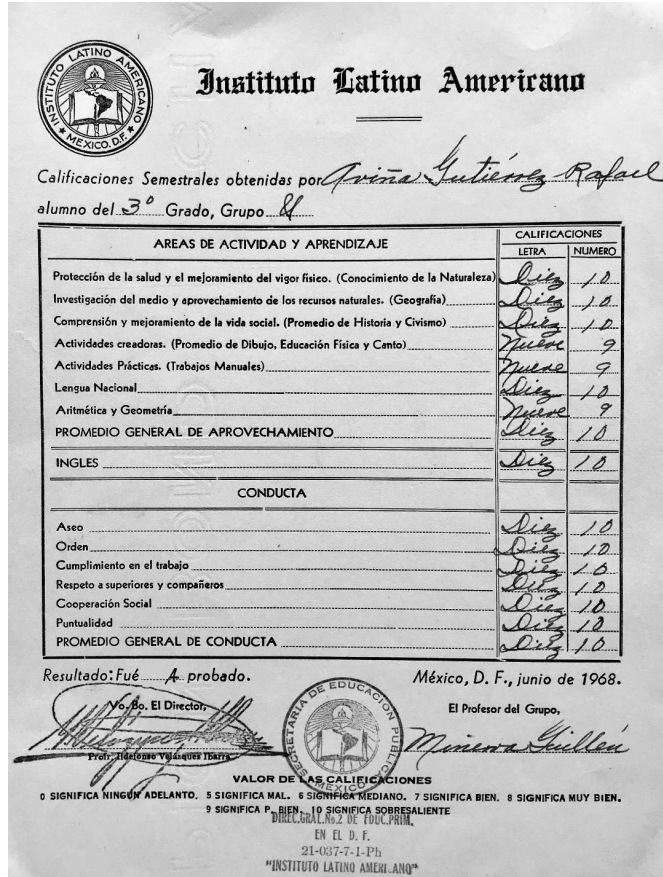 INSTITUTO LATINO AMERICANO
★ MEXICO. D.F. ★
Instituto Latino Americano
Calificaciones Semestrales obtenidas por Aviña Gutiérrez Rafael
alumno del 3º Grado, Grupo
AREAS DE ACTIVIDAD Y APRENDIZAJE CALIFICACIONES
LETRA NUMERO
Protección de la salud y el mejoramiento del vigor fisico. (Conocimiento de la Naturaleza) Diez 10
Investigación del medio y aprovechamiento de los recursos naturales. (Geografía) Diez 10
Comprensión y mejoramiento de la vida social. (Promedio de Historia y Civismo) Diez 10
Actividades creadoras. (Promedio de Dibujo, Educación Física y Canto) Nueve 9
Actividades Prácticas. (Trabajos Manuales) Nueve 9
Lengua Nacional Diez 10
Aritmética y Geometría Nueve 9
PROMEDIO GENERAL DE APROVECHAMIENTO Diez 10
INGLES Diez 10
CONDUCTA
Aseo Diez 10
Orden Diez 10
Cumplimiento en el trabajo Diez 10
Respeto a superiores y compañeros Diez 10
Cooperación Social Diez 10
Puntualidad Diez 10
PROMEDIO GENERAL DE CONDUCTA Diez 10
Resultado: Fué A probado. México, D. F., junio de 1968.
Vo. Bo. El Director, El Profesor del Grupo,
Profr. Ildefonso Velázquez Ibarra Minerva Guillén
SECRETARIA DE EDUCACION PUBLICA
MEXICO
VALOR DE LAS CALIFICACIONES
0 SIGNIFICA NINGUN ADELANTO. 5 SIGNIFICA MAL. 6 SIGNIFICA MEDIANO. 7 SIGNIFICA BIEN. 8 SIGNIFICA MUY BIEN.
9 SIGNIFICA P. BIEN. 10 SIGNIFICA SOBRESALIENTE
DIREC.GRAL.No.2 DE EDUC.PRIM.
EN EL D. F.
21-037-7-1-Ph
"INSTITUTO LATINO AMERICANO"